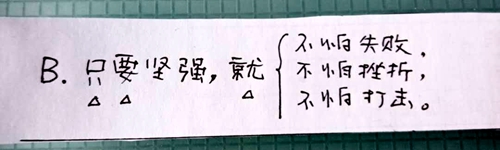 B. 只要坚强，就
不怕失败，
不怕挫折，
不怕打击。